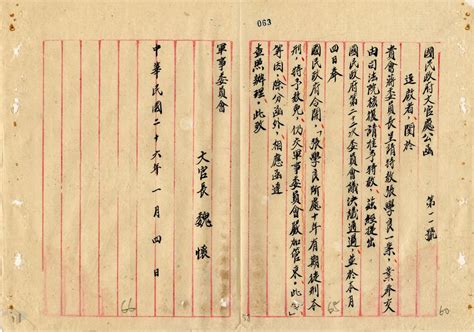 063
國民政府文官處公函 第一一號
逕啟者,關於
貴會蔣委員長呈請特赦張學良一案,業奉交
由司法院核復請准予特赦,茲經提出
國民政府第二十二次委員會議決議通過,並於本月
四日奉
國民政府令開「張學良所處十年有期徒刑本
刑,特予赦免,仍交軍事委員會嚴加管束,此令」
等因,除分函外,相應函達
查照辦理,此致
軍事委員會
文官長 魏懷
中華民國二十六年一月四日
60
65
66